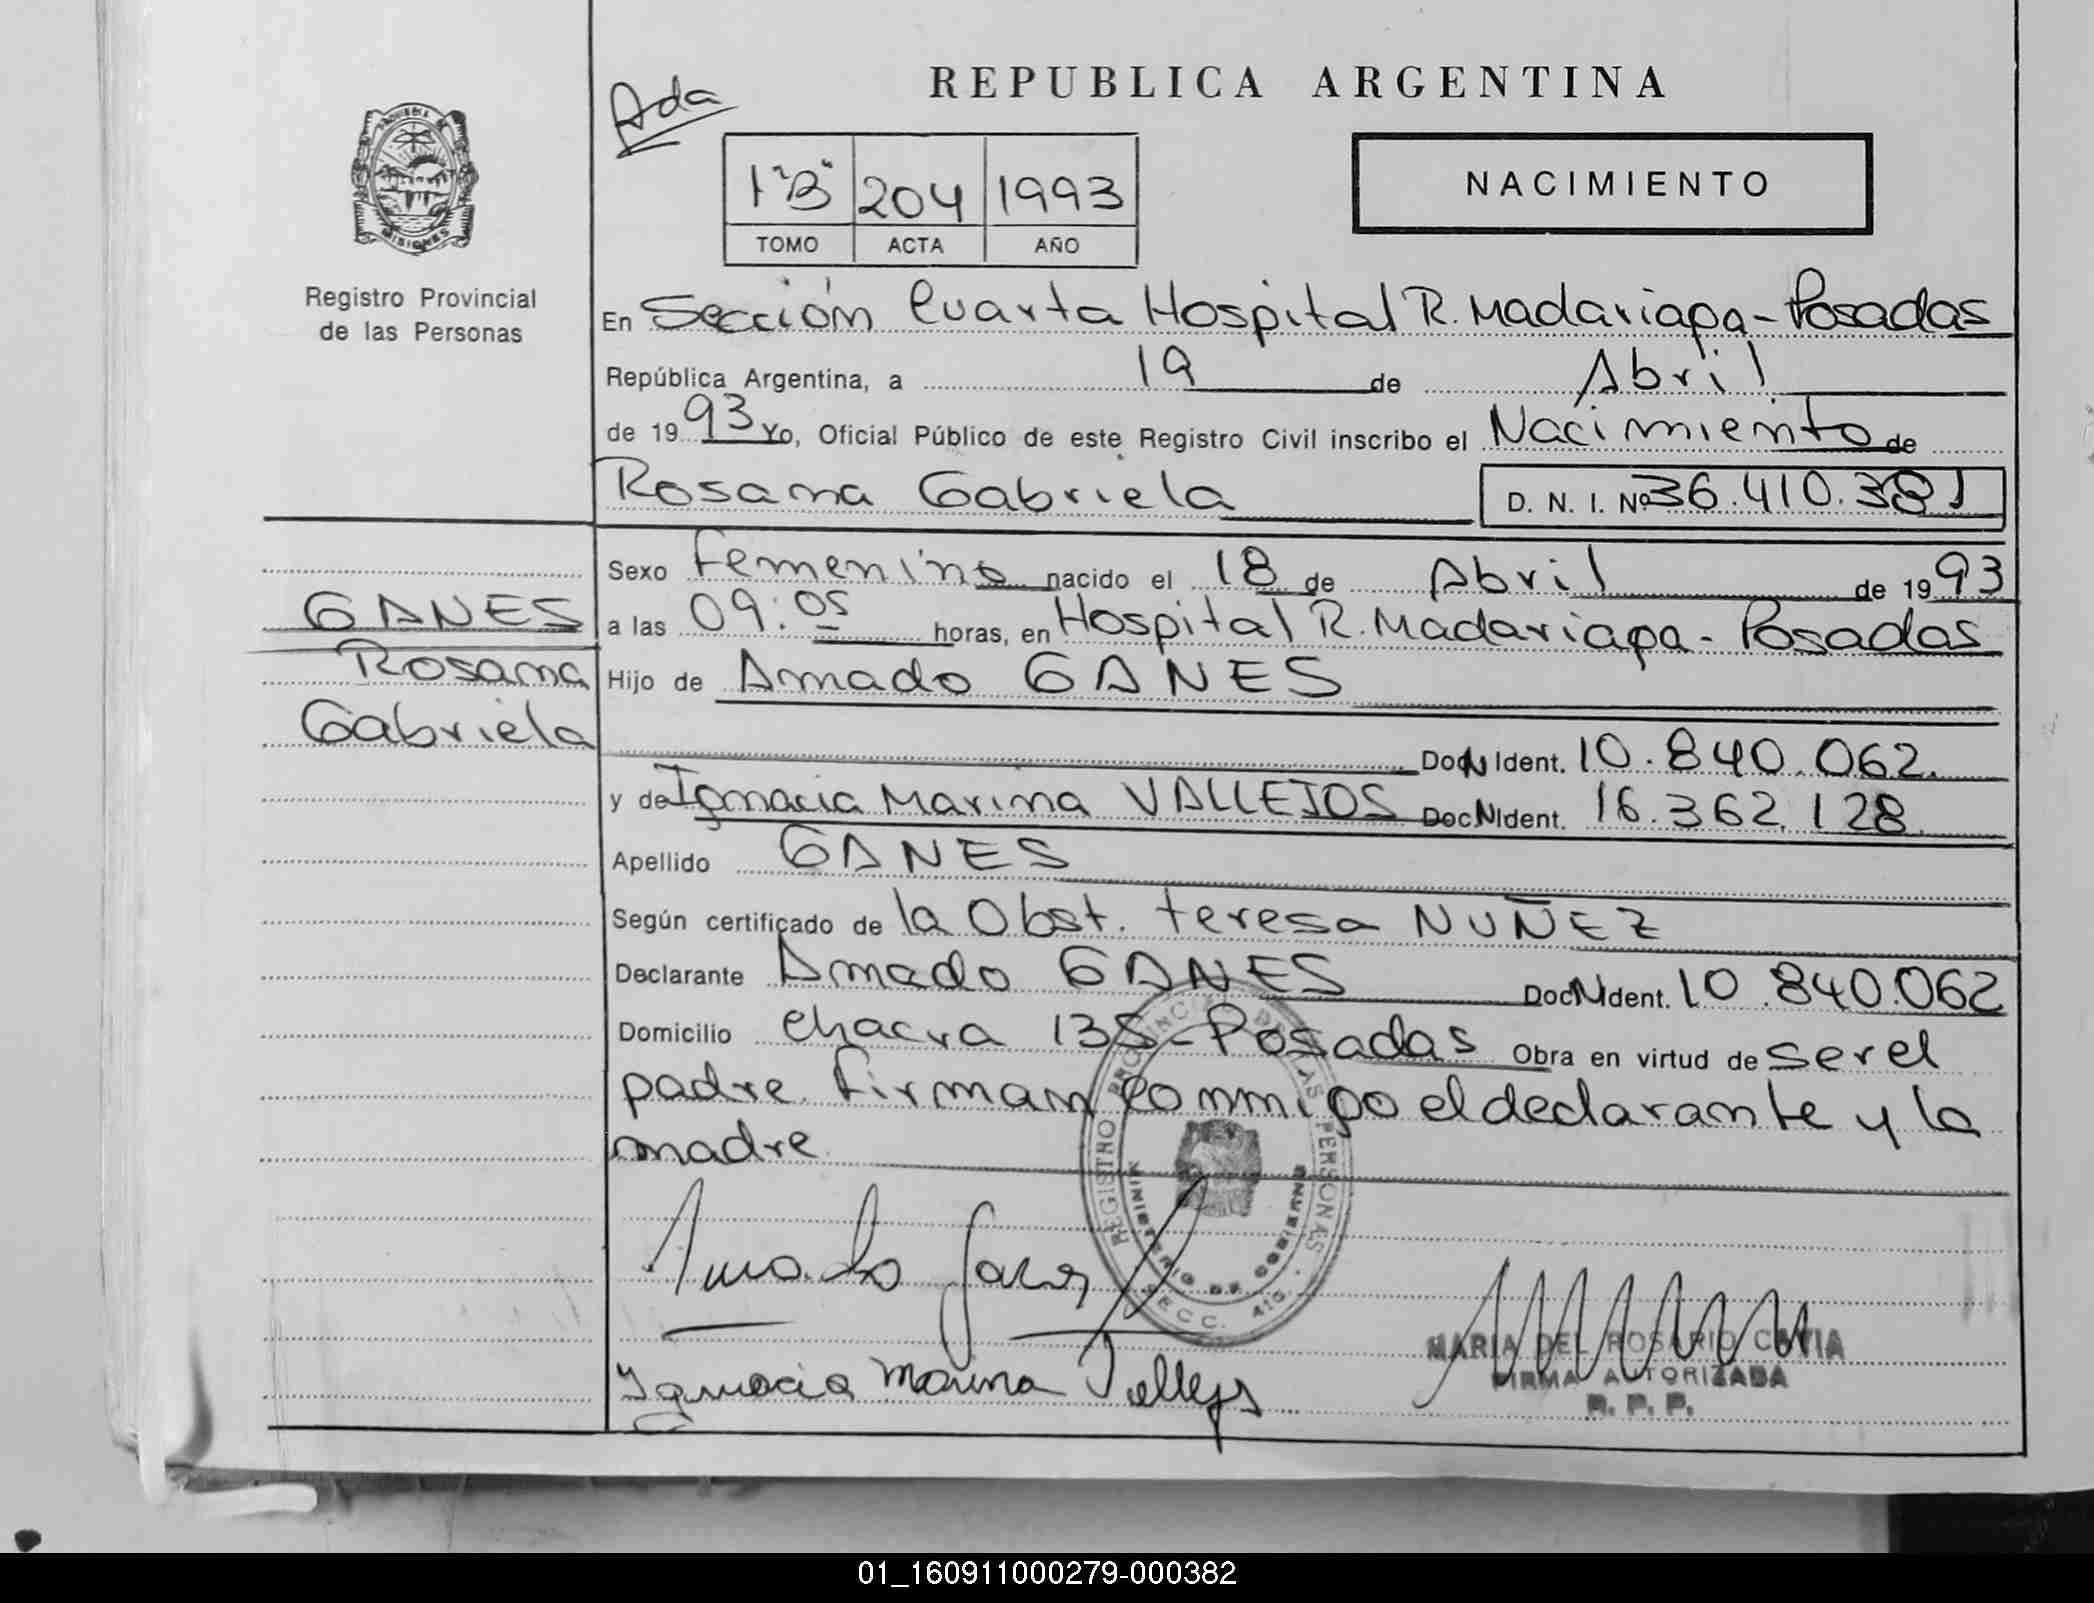 REPUBLICA ARGENTINA
Ada
1 "B" 204 1993
TOMO ACTA AÑO
NACIMIENTO
PROVINCIA DE
MISIONES
Registro Provincial
de las Personas
En Sección Cuarta Hospital R. Madariaga - Posadas
República Argentina, a 19 de Abril
de 1993 Yo, Oficial Público de este Registro Civil inscribo el Nacimiento de
Rosana Gabriela D. N. I. Nº 36.410.381
Sexo Femenino nacido el 18 de Abril de 1993
GANES
Rosana
Gabriela
a las 09:05 horas, en Hospital R. Madariaga - Posadas
Hijo de Amado GANES
Doc N Ident. 10.840.062.
y de Ignacia Marina VALLEJOS Doc N Ident. 16.362.128
Apellido GANES
Según certificado de la Obst. teresa NUÑEZ
Declarante Amado GANES Doc N Ident. 10.840.062
Domicilio chacra 135 - Posadas Obra en virtud de ser el
padre. Firman conmigo el declarante y la
madre.
REGISTRO PROVINCIAL DE LAS PERSONAS
MINISTERIO DE GOBIERNO
SECC. 4ta.
Amado Ganes
Ignacia Marina Vallejos
MARIA DEL ROSARIO
FIRMA AUTORIZADA
R. P. P.
01_160911000279-000382